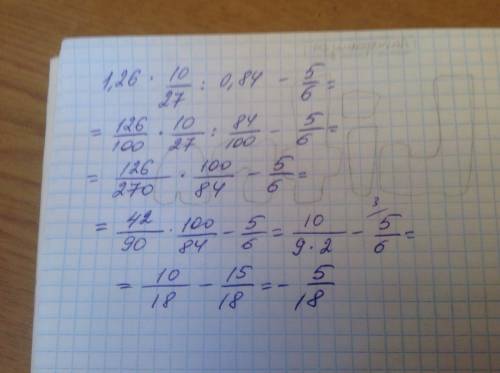 1,26 · 10/27 : 0,84 - 5/6 =
= 126/100 · 10/27 : 84/100 - 5/6 =
= 126/270 · 100/84 - 5/6 =
= 42/90 · 100/84 - 5/6 = 10/9·2 - 3/ 5/6 =
= 10/18 - 15/18 = - 5/18